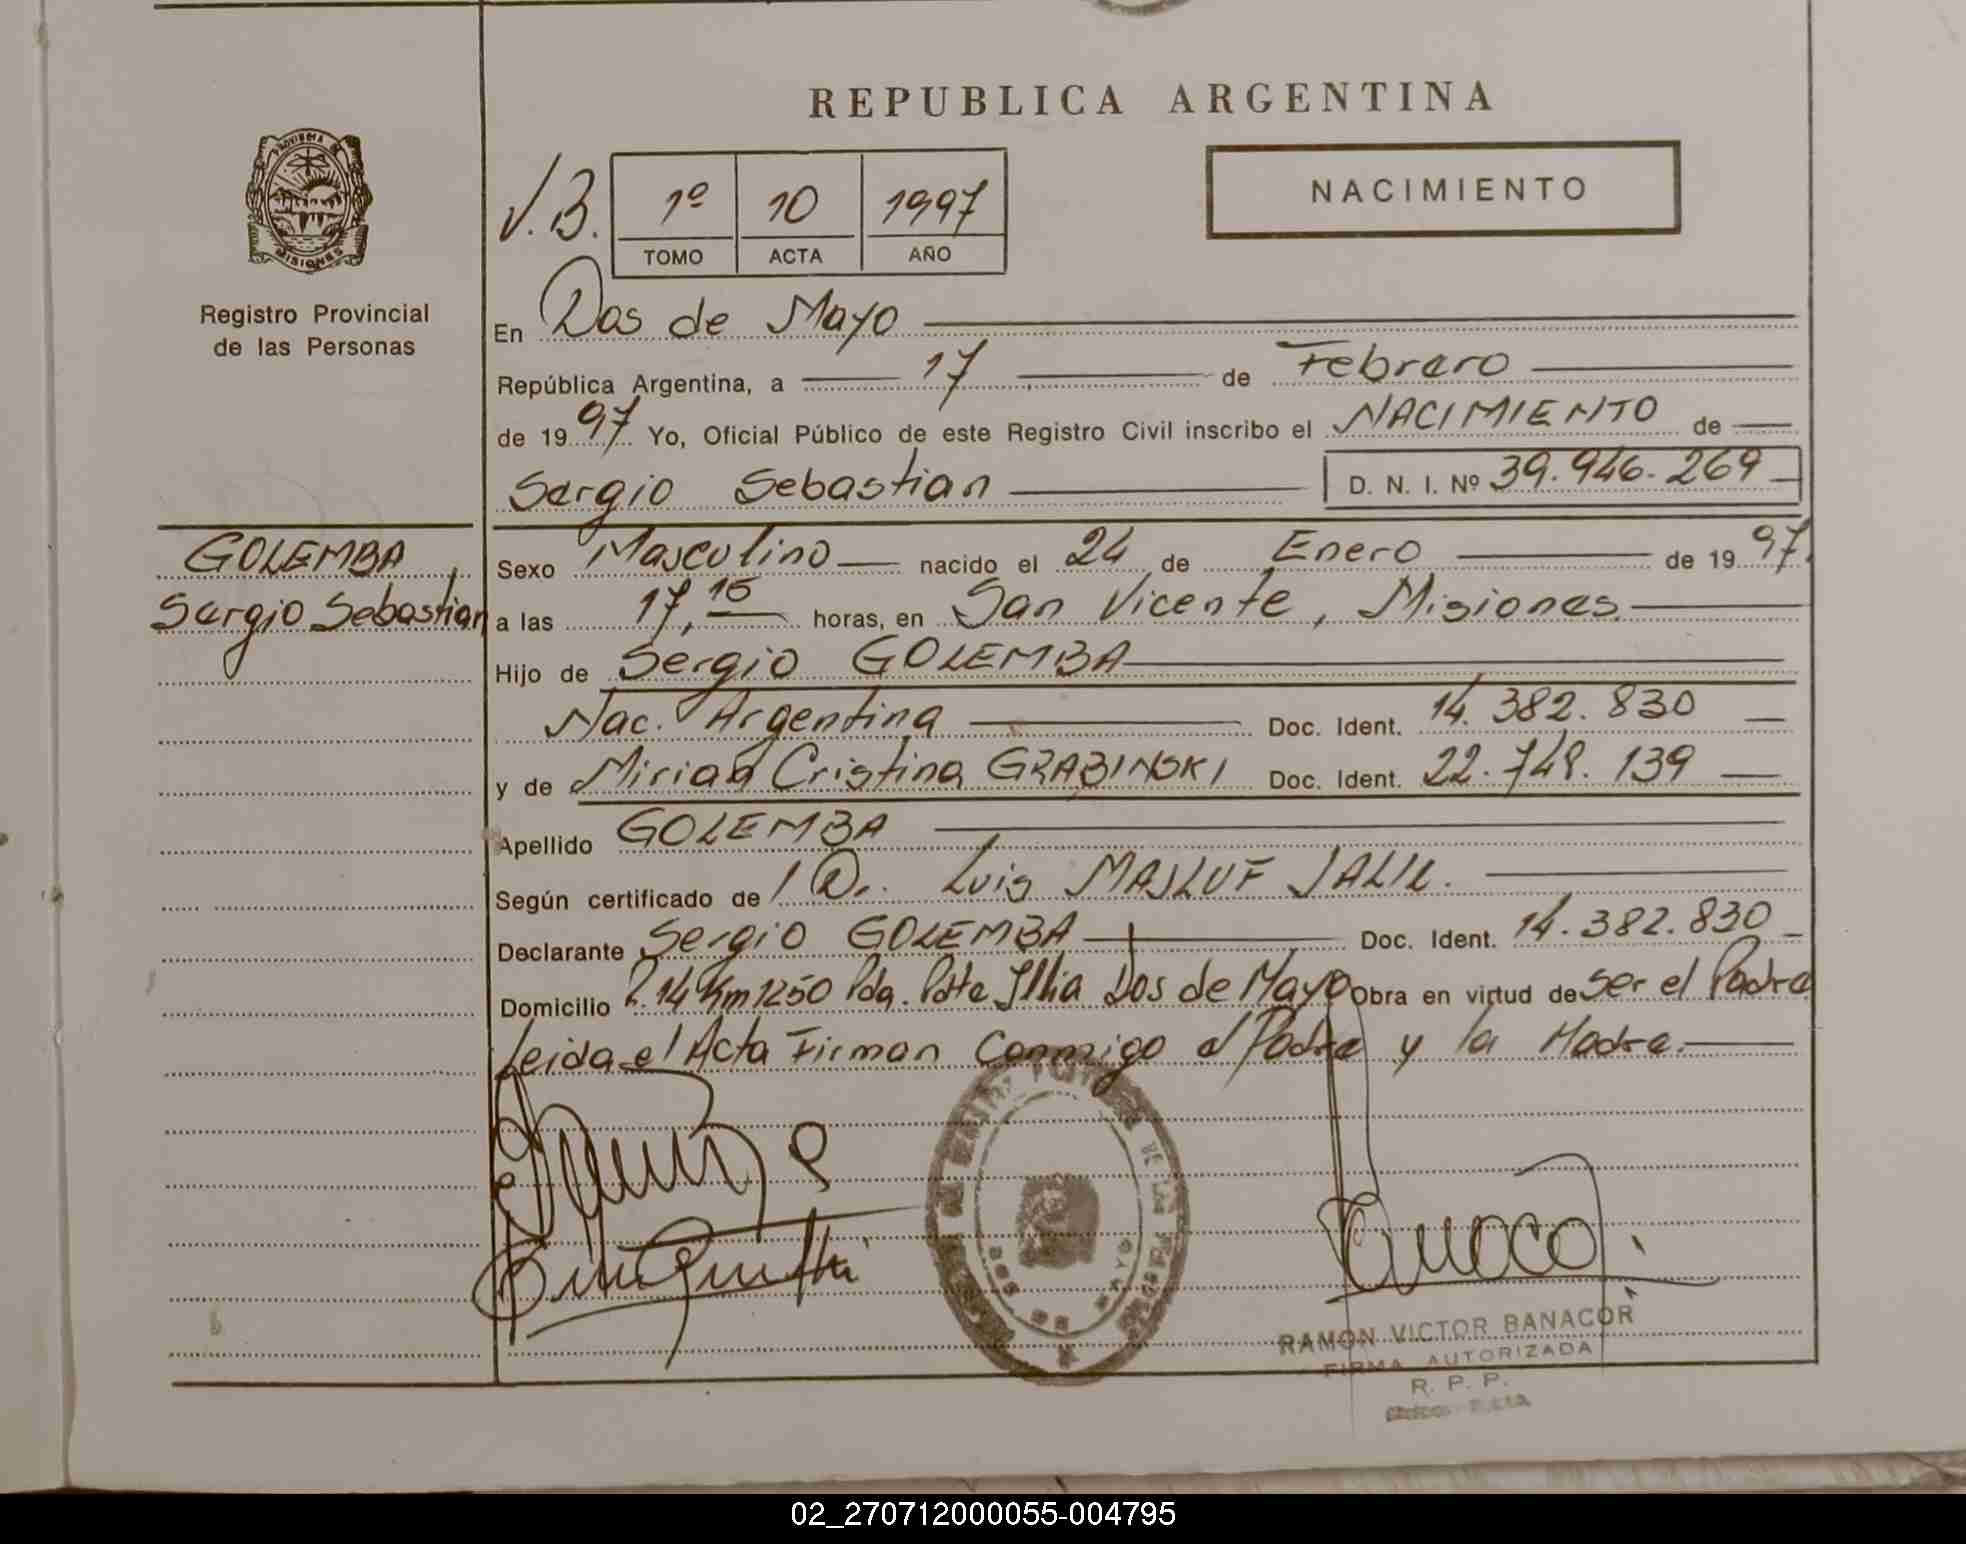 REPUBLICA ARGENTINA
PROVINCIA DE MISIONES
Registro Provincial
de las Personas
V.B.
1º 10 1997
TOMO ACTA AÑO
NACIMIENTO
En Dos de Mayo
República Argentina, a 17 de Febrero
de 1997 Yo, Oficial Público de este Registro Civil inscribo el NACIMIENTO de
Sergio Sebastian D. N. I. Nº 39.946.269
GOLEMBA
Sergio Sebastian
Sexo Masculino nacido el 24 de Enero de 1997.
a las 17,15 horas, en San Vicente, Misiones.
Hijo de Sergio GOLEMBA
Nac. Argentina Doc. Ident. 14.382.830
y de Mirian Cristina GRABINSKI Doc. Ident. 22.748.139
Apellido GOLEMBA
Según certificado de / Dr. Luis MASLUF JALIL.
Declarante Sergio GOLEMBA Doc. Ident. 14.382.830
Domicilio R. 14 Km 1250 Pda. Pdte Illia Dos de Mayo Obra en virtud de ser el Padre
Leida el Acta Firman Conmigo el Padre y la Madre.
DE LAS
DOS DE MAYO
RAMON VICTOR BANACOR
FIRMA AUTORIZADA
R. P. P.
02_270712000055-004795